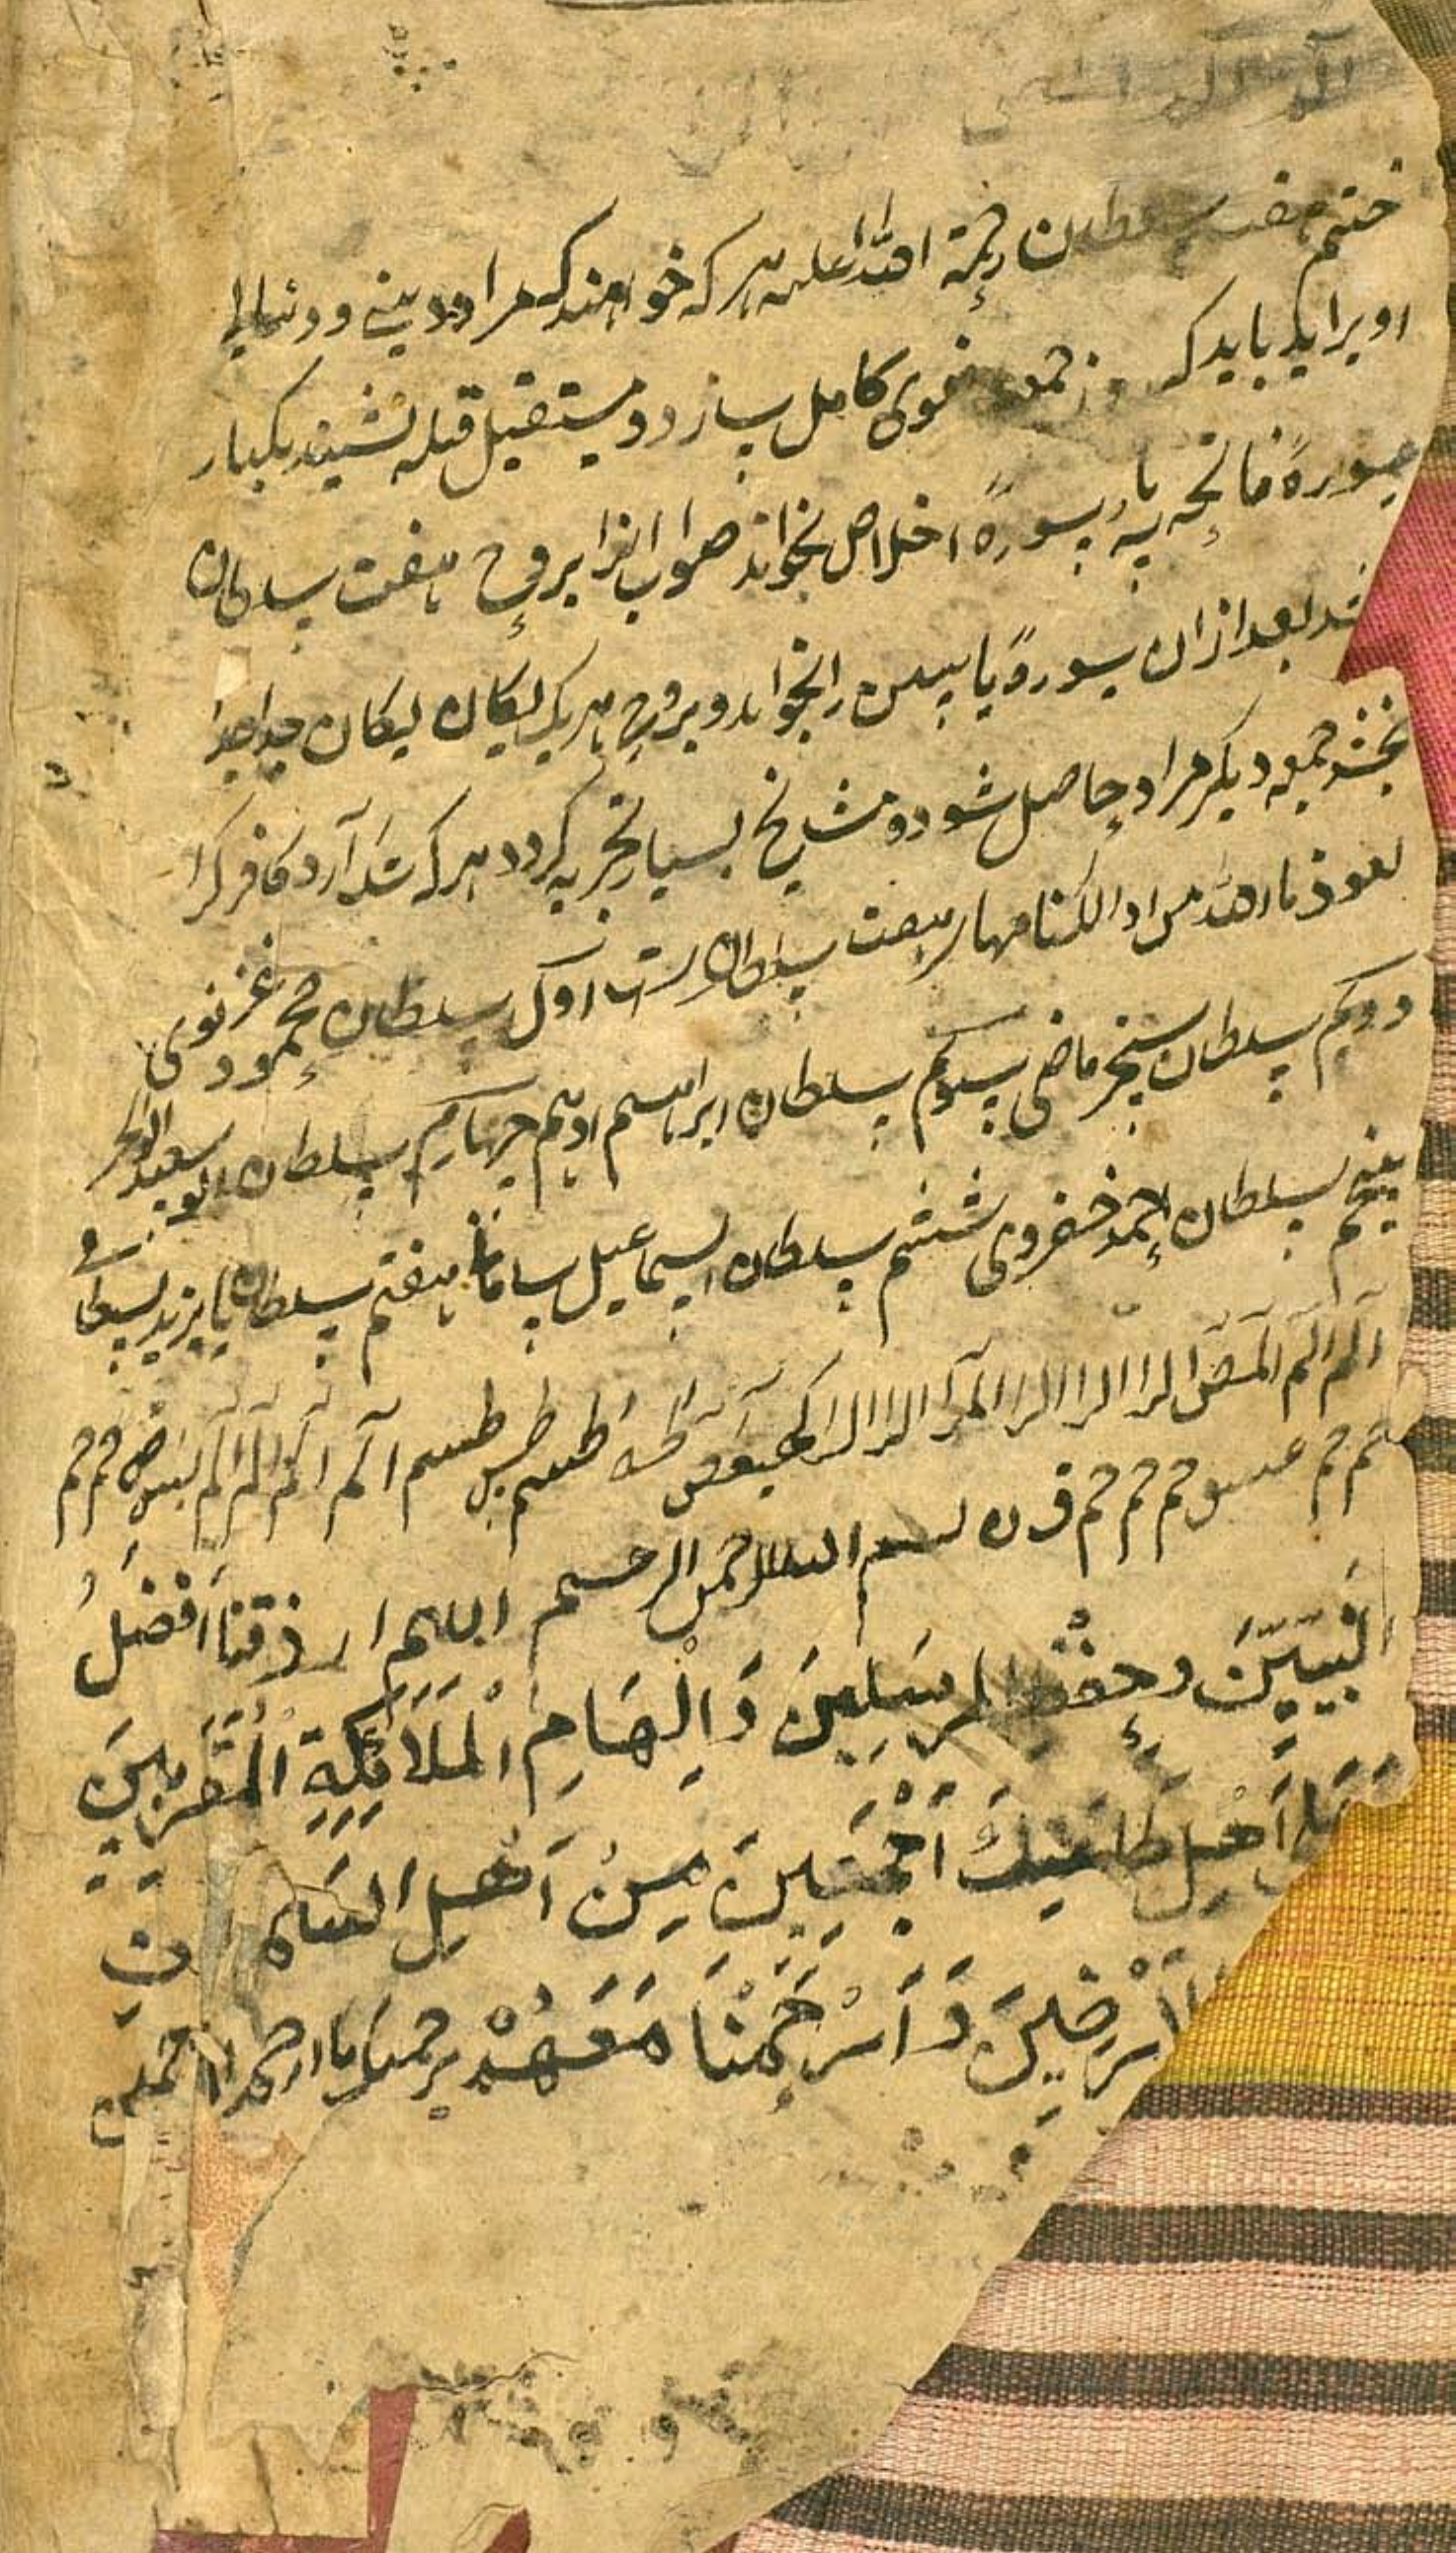 ختم هفت سلطان رحمة الله علیه هر که خواهند که مراد دینی و دنیا
او برآید باید که روز جمعه وضوی کامل بسازد و مستقبل قبله نشیند یکبار
سورهٔ فاتحه سه بار سورهٔ اخلاص بخواند ثواب انرا بروح هفت سلطان
بخشد بعد ازان سورهٔ یاسین را بخواند و بروح هر یک یکان یکان جدا جدا
بخشد جمعه دیگر مراد حاصل شود و مشایخ بسیار تجربه کردد هر که شک آرد کافر گردد
نعوذ بالله من ذالک نامهار هفت سلطان است اوّل سلطان محمود غزنوی
دویم سلطان سنجر ماضی سیوم سلطان ابراهیم ادهم چهارم سلطان ابو سعید ابوالخیر
پنجم سلطان احمد خضروی ششم سلطان اسماعیل سامانی هفتم سلطان بایزید بسطامی
الم الم المص الرا الرا الرا المرا الرا الرا کهیعص طه طسم طس طسم الم الم الم الم یس ص حم حم
حم حم عسق حم حم حم ق ن بسم الله الرحمن الرحیم اللهم ارزقنا افضلُ
النبیّینَ وحفظ المرسَلِینَ وَاِلْهَامِ الْمَلَائِكَةِ المُقَرَّبِینَ
اَهْلِ طَاعَتِكَ اَجْمَعِینَ مِنْ اَهْلِ السَّمٰوٰتِ
اَرْضِینَ وَاَرْحَمْنَا مَعَهُمْ برحمتك یا ارحم الراحمین